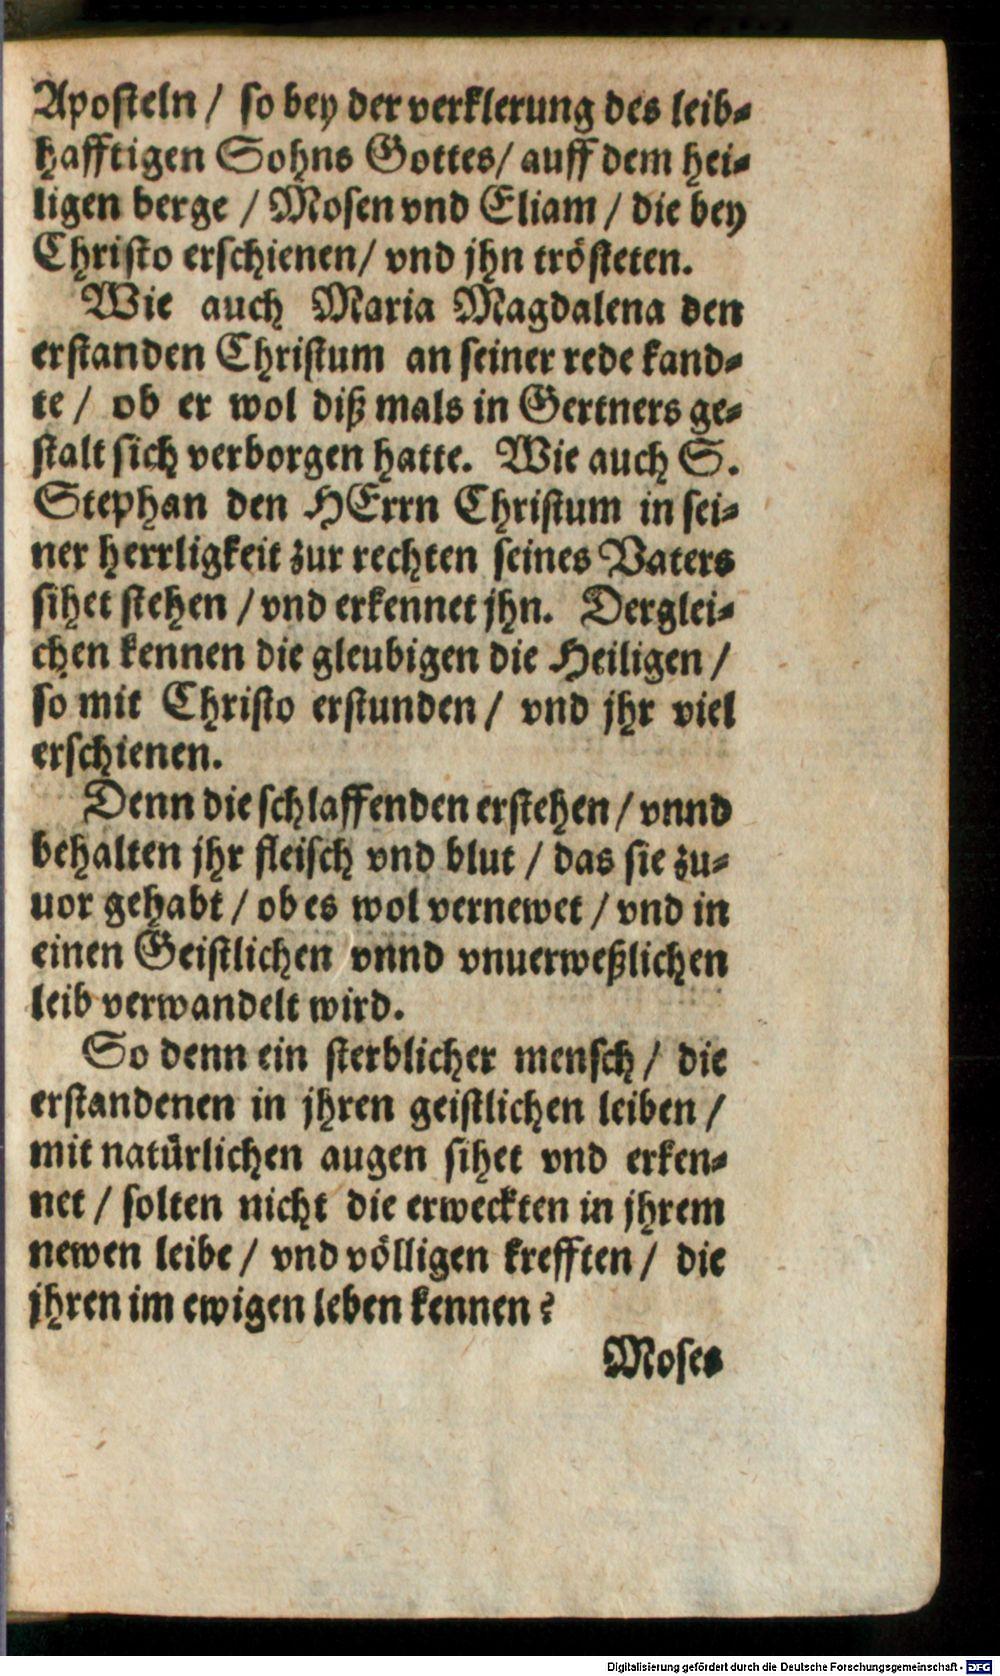 Aposteln / so bey der verklerung des leib-
hafftigen Sohns Gottes / auff dem hei-
ligen berge / Mosen vnd Eliam / die bey
Christo erschienen / vnd jhn trösteten.
Wie auch Maria Magdalena den
erstanden Christum an seiner rede kand-
te / ob er wol diß mals in Gertners ge-
stalt sich verborgen hatte. Wie auch S.
Stephan den HErrn Christum in sei-
ner herrligkeit zur rechten seines Vaters
sihet stehen / vnd erkennet jhn. Derglei-
chen kennen die gleubigen die Heiligen /
so mit Christo erstunden / vnd jhr viel
erschienen.
Denn die schlaffenden erstehen / vnnd
behalten jhr fleisch vnd blut / das sie zu-
uor gehabt / ob es wol vernewet / vnd in
einen Geistlichen vnnd vnuerweßlichen
leib verwandelt wird.
So denn ein sterblicher mensch / die
erstandenen in jhren geistlichen leiben /
mit natürlichen augen sihet vnd erken-
net / solten nicht die erweckten in jhrem
newen leibe / vnd völligen krefften / die
jhren im ewigen leben kennen?
Moses
Digitalisierung gefördert durch die Deutsche Forschungsgemeinschaft - DFG